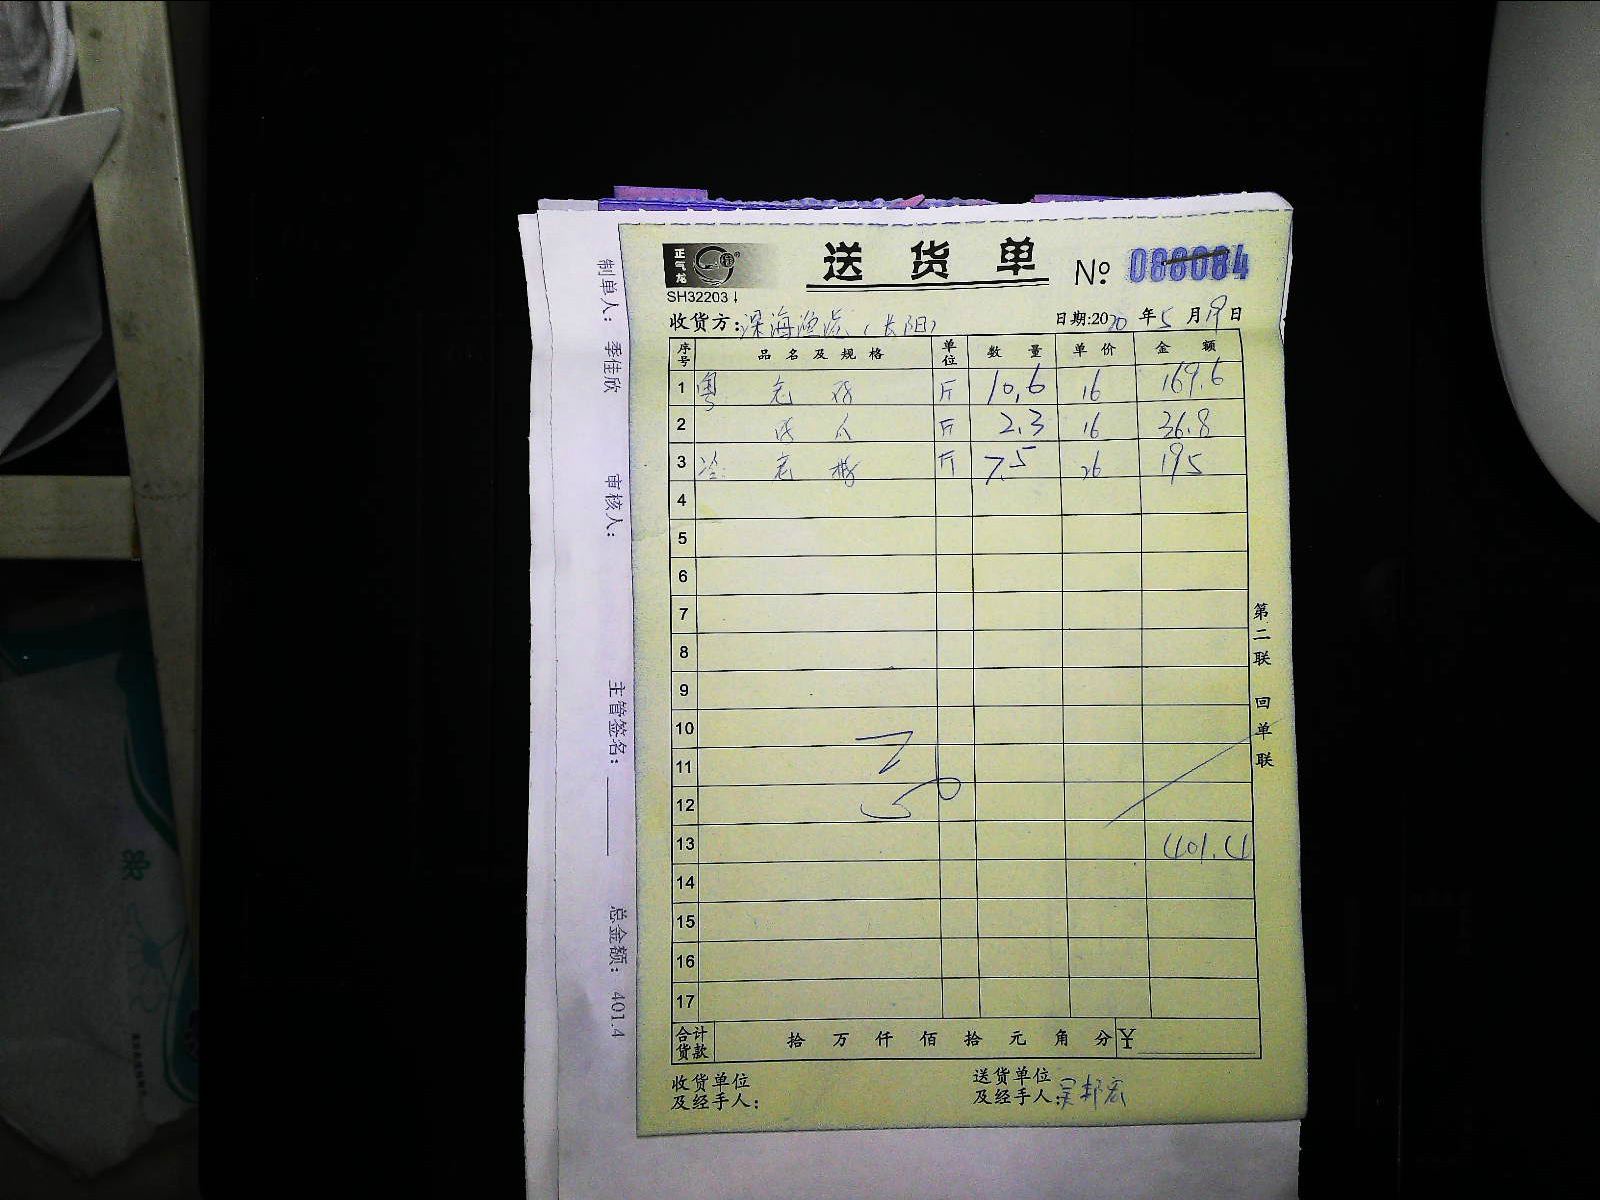 正气龙
送 货 单 № 088084
SH32203
收货方: 深海渔 (长阳) 日期:2020 年 5 月 19 日
序号 品 名 及 规 格 单位 数 量 单 价 金 额
1 斤 10.6 16 169.6
2 斤 2.3 16 36.8
3 斤 7.5 26 195
4
5
6
7
8
9
10
11
12
13 401.4
14
15
16
17
合计货款 拾 万 仟 佰 拾 元 角 分 ¥
收货单位
及经手人:
送货单位
及经手人:
第二联 回单联
制单人: 季佳欣 审核人: 主管签名: 总金额: 401.4